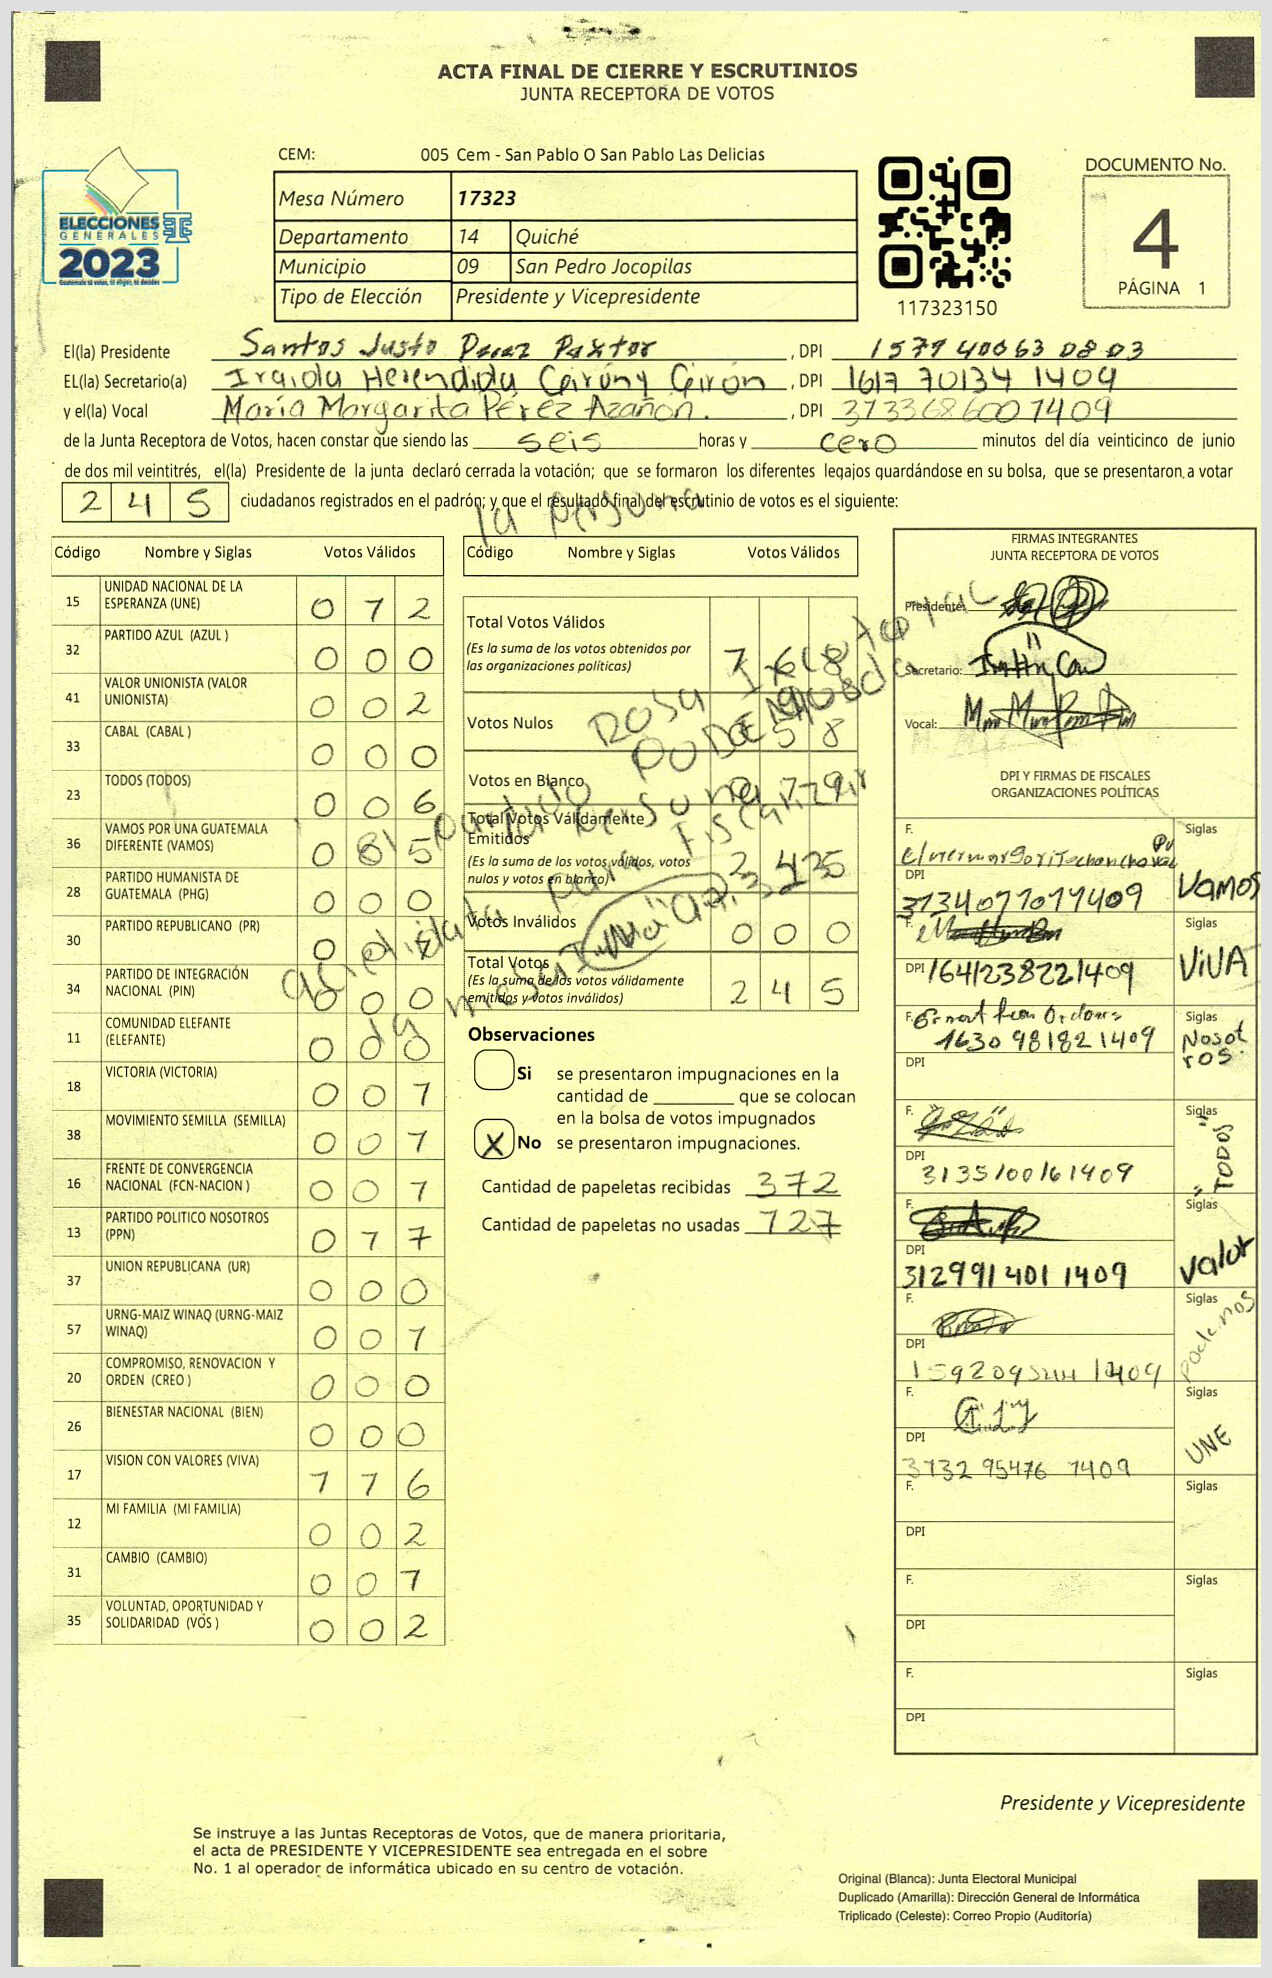 ACTA FINAL DE CIERRE Y ESCRUTINIOS
JUNTA RECEPTORA DE VOTOS
CEM: 005 Cem - San Pablo O San Pablo Las Delicias
Mesa Número 17323
Departamento 14 Quiché
Municipio 09 San Pedro Jocopilas
Tipo de Elección Presidente y Vicepresidente
ELECCIONES
GENERALES
2023
117323150
DOCUMENTO No.
4
PÁGINA 1
El(la) Presidente Santos Justo , DPI
EL(la) Secretario(a) Iraida , DPI 1617 70134 1409
y el(la) Vocal María Margarita Pérez Azañón. , DPI
de la Junta Receptora de Votos, hacen constar que siendo las seis horas y cero minutos del día veinticinco de junio
de dos mil veintitrés, el(la) Presidente de la junta declaró cerrada la votación; que se formaron los diferentes legajos quardándose en su bolsa, que se presentaron a votar
2 4 5 ciudadanos registrados en el padrón; y que el resultado final del escrutinio de votos es el siguiente:
la persona
Código Nombre y Siglas Votos Válidos
15 UNIDAD NACIONAL DE LA ESPERANZA (UNE) 0 7 2
32 PARTIDO AZUL (AZUL ) 0 0 0
41 VALOR UNIONISTA (VALOR UNIONISTA) 0 0 2
33 CABAL (CABAL ) 0 0 0
23 TODOS (TODOS) 0 0 6
36 VAMOS POR UNA GUATEMALA DIFERENTE (VAMOS) 0 8 5
28 PARTIDO HUMANISTA DE GUATEMALA (PHG) 0 0 0
30 PARTIDO REPUBLICANO (PR) 0 0
34 PARTIDO DE INTEGRACIÓN NACIONAL (PIN) 0 0 0
11 COMUNIDAD ELEFANTE (ELEFANTE) 0 0 0
18 VICTORIA (VICTORIA) 0 0 1
38 MOVIMIENTO SEMILLA (SEMILLA) 0 0 1
16 FRENTE DE CONVERGENCIA NACIONAL (FCN-NACION ) 0 0 1
13 PARTIDO POLITICO NOSOTROS (PPN) 0 1 1
37 UNION REPUBLICANA (UR) 0 0 0
57 URNG-MAIZ WINAQ (URNG-MAIZ WINAQ) 0 0 1
20 COMPROMISO, RENOVACION Y ORDEN (CREO ) 0 0 0
26 BIENESTAR NACIONAL (BIEN) 0 0 0
17 VISION CON VALORES (VIVA) 1 1 6
12 MI FAMILIA (MI FAMILIA) 0 0 2
31 CAMBIO (CAMBIO) 0 0 1
35 VOLUNTAD, OPORTUNIDAD Y SOLIDARIDAD (VOS ) 0 0 2
Código Nombre y Siglas Votos Válidos
Total Votos Válidos
(Es la suma de los votos obtenidos por
las organizaciones políticas)
Votos Nulos
Votos en Blanco
Total Votos Válidamente
Emitidos
(Es la suma de los votos válidos, votos
nulos y votos en blanco)
Votos Inválidos 0 0 0
Total Votos
(Es la suma de los votos válidamente
emitidos y votos inválidos) 2 4 5
Rosa
partido persona
para Fiscalizar
Observaciones
Si se presentaron impugnaciones en la
cantidad de ________ que se colocan
en la bolsa de votos impugnados
X No se presentaron impugnaciones.
Cantidad de papeletas recibidas 372
Cantidad de papeletas no usadas 127
FIRMAS INTEGRANTES
JUNTA RECEPTORA DE VOTOS
Presidente:
Secretario:
Vocal:
DPI Y FIRMAS DE FISCALES
ORGANIZACIONES POLÍTICAS
F. Siglas
DPI Vamos
F. Siglas
DPI 1641238221409 VIVA
F. Siglas
1630 981821409 Nosotros.
DPI
F. Siglas
DPI 3135100161409 "TODOS"
F. Siglas
DPI 3129914011409 Valor
F. Siglas
DPI Podemos
F. Siglas
DPI 3132 95476 1409 UNE
F. Siglas
DPI
F. Siglas
DPI
F. Siglas
DPI
Presidente y Vicepresidente
Se instruye a las Juntas Receptoras de Votos, que de manera prioritaria,
el acta de PRESIDENTE Y VICEPRESIDENTE sea entregada en el sobre
No. 1 al operador de informática ubicado en su centro de votación.
Original (Blanca): Junta Electoral Municipal
Duplicado (Amarilla): Dirección General de Informática
Triplicado (Celeste): Correo Propio (Auditoría)